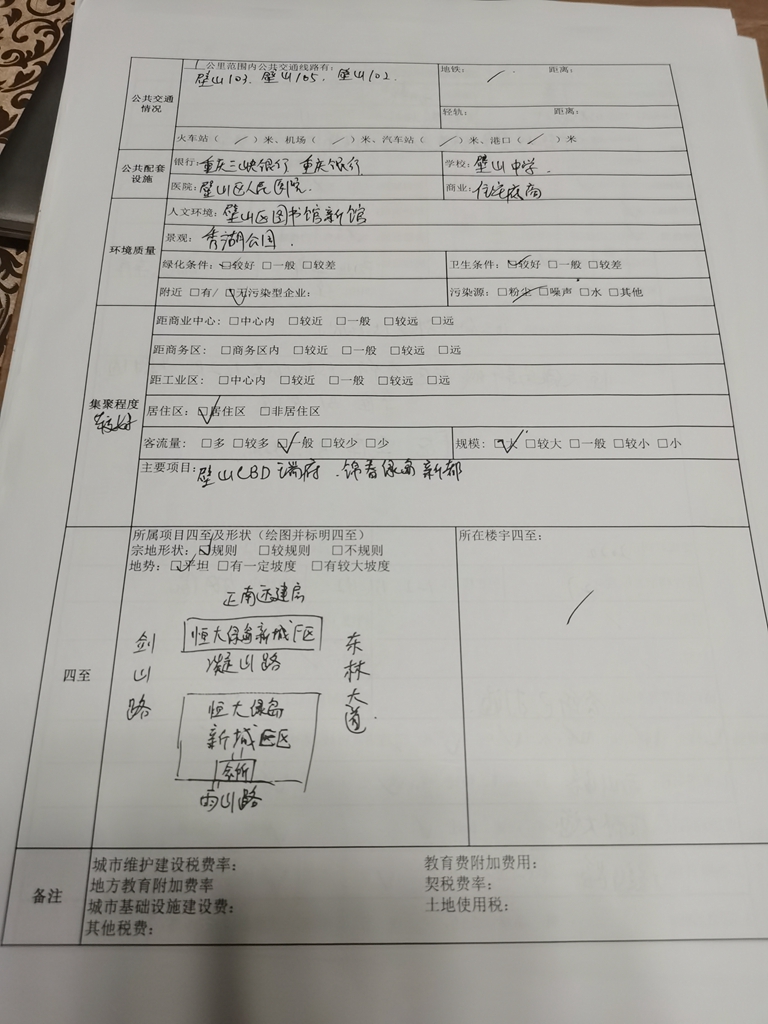 1公里范围内公共交通线路有：
璧山103. 璧山105. 璧山102.
地铁： / 距离：
轻轨： 距离：
公共交通情况
火车站（ / ）米、机场（ / ）米、汽车站（ / ）米、港口（ / ）米
公共配套设施
银行：重庆三峡银行 重庆银行.
学校：璧山中学.
医院：璧山区人民医院.
商业：住宅底商
环境质量
人文环境：璧山区图书馆新馆
景观：秀湖公园.
绿化条件：☑较好 □一般 □较差
卫生条件：☑较好 □一般 □较差
附近 □有/ ☑无污染型企业：
污染源：□粉尘 □噪声 □水 □其他
集聚程度
较好
距商业中心：□中心内 □较近 □一般 □较远 □远
距商务区：□商务区内 □较近 □一般 □较远 □远
距工业区：□中心内 □较近 □一般 □较远 □远
居住区：☑居住区 □非居住区
客流量：□多 □较多 ☑一般 □较少 □少
规模：☑大 □较大 □一般 □较小 □小
主要项目：璧山CBD 府. 绿岛新都
四至
所属项目四至及形状（绘图并标明四至）
宗地形状：☑规则 □较规则 □不规则
地势：☑平坦 □有一定坡度 □有较大坡度
所在楼宇四至：
/
正南
恒大绿岛新城F区
凝山路
剑山路
东林大道.
恒大绿岛
新城E区
会所
雨山路
备注
城市维护建设税费率：
教育费附加费用：
地方教育附加费率
契税费率：
城市基础设施建设费：
土地使用税：
其他税费：